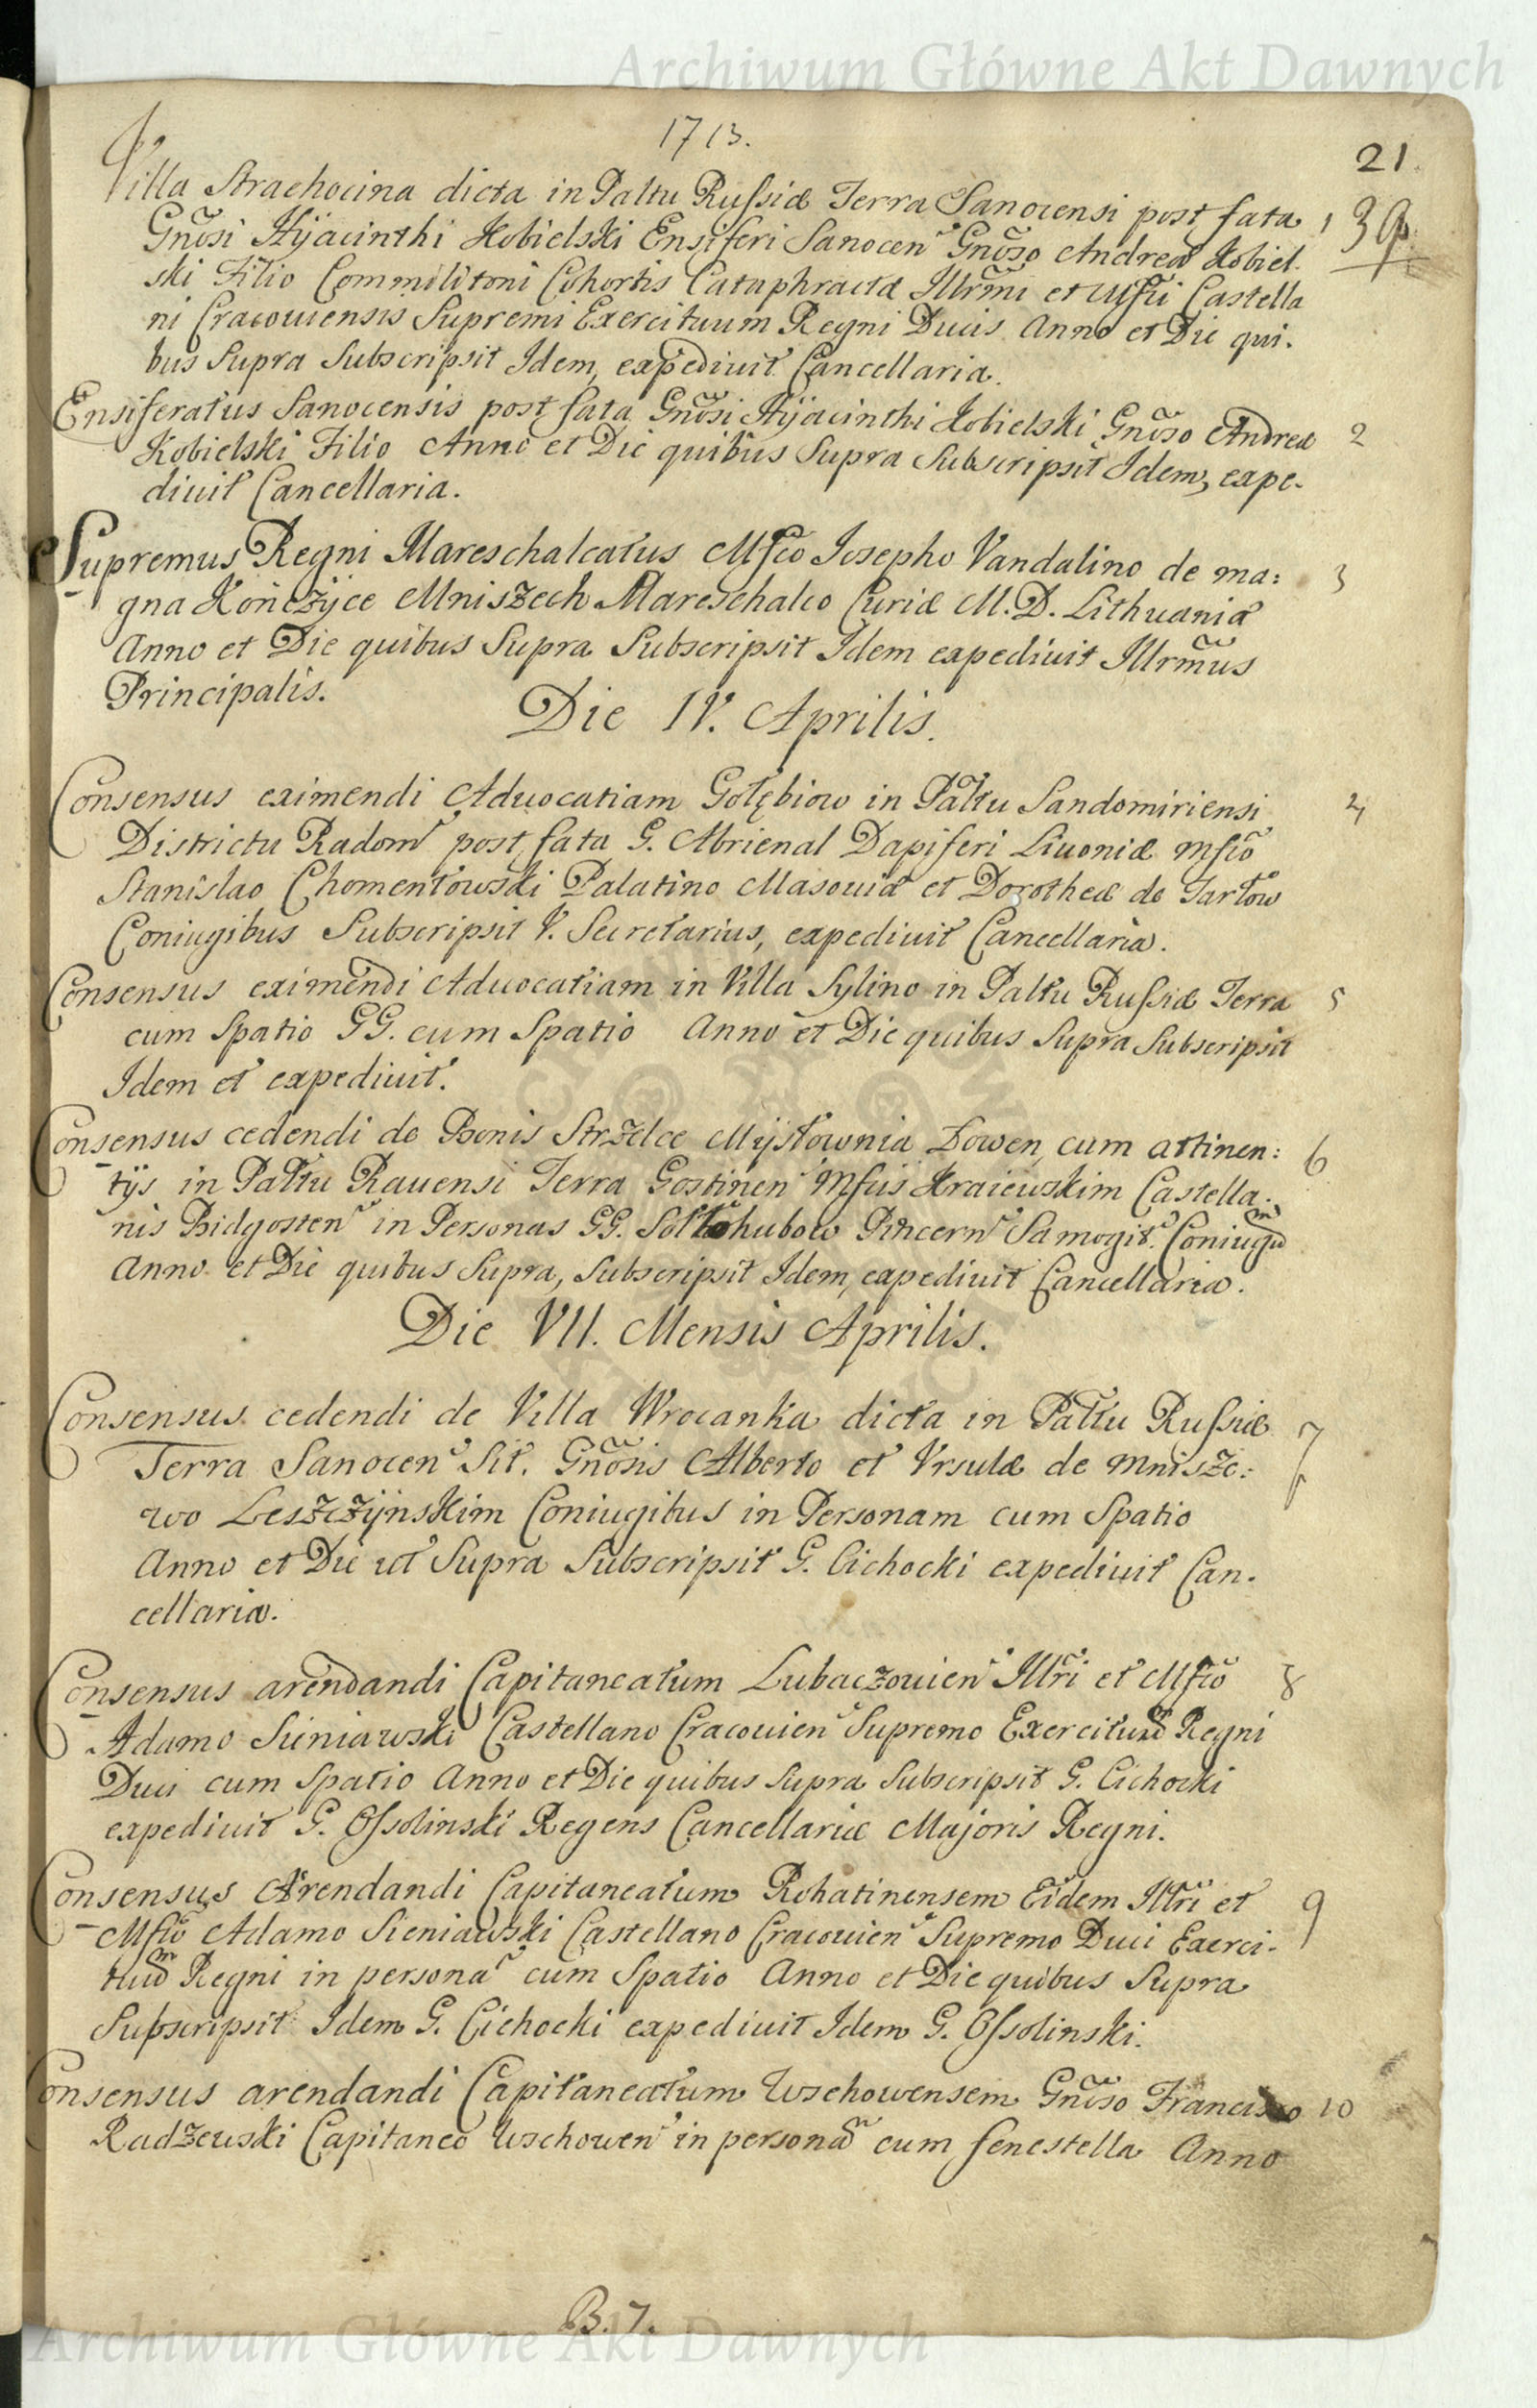 Archiwum Główne Akt Dawnych
1713.
21.
Villa Strachocina dicta in Palt̃u Russiæ Terra Sanocensi post fata 1 39
Gnõsi Hÿacinthi Kobielski Ensiferi Sanocen̆ Gnõso Andreæ Kobiel-
ski Filio Commilitoni Cohortis Cataphractæ Illrm̃i et Mfci Castella
ni Cracouiensis Supremi Exercituum Regni Ducis Anno et Die qui-
bus Supra Subscripsit Idem, expediuit Cancellaria.
Ensiferatus Sanocensis post fata Gnõsi Hÿacinthi Kobielski Gnõso Andreæ 2
Kobielski Filio Anno et Die quibus Supra Subscripsit Idem, expe-
diuit Cancellaria.
Supremus Regni Mareschalcatus Mfco Josepho Vandalino de ma: 3
gna Kończÿce Mniszech Mareschalco Curiæ M. D. Lithuaniæ
Anno et Die quibus Supra Subscripsit Idem expediuit Illrm̃us
Principalis.
Die IV. Aprilis.
Consensus eximendi Aduocatiam Gołębiow in Palt̃u Sandomiriensi 4
Districtu Radom̆ post fata G. Abrienal Dapiferi Liuoniæ Mfcõ
Stanislao Chomentowski Palatino Masouiæ et Dorotheæ de Tarłow
Coniugibus Subscripsit V. Secretarius, expediuit Cancellaria.
Consensus eximendi Aduocatiam in Villa Sylino in Palt̃u Russiæ Terra 5
cum Spatio GG. cum Spatio Anno et Die quibus Supra Subscripsit
Idem et expediuit.
Consensus cedendi de Bonis Strzelce Mÿsłownia Dowen cum attinen: 6
tÿs in Palt̃u Rauensi Terra Gostinen̆ Mfcis Kraiewskim Castella-
nis Bidgosten̆ in Personas GG. Sołłohubow Pincern̆ Samogit. Coniugũ
Anno et Die quibus Supra, Subscripsit Idem, expediuit Cancellaria.
Die VII. Mensis Aprilis.
Consensus cedendi de Villa Wrocanka dicta in Palt̃u Russiæ 7
Terra Sanocen̆ Sit. Gnõsis Alberto et Vrsulæ de Mnisze:
wo Leszczÿnskim Coniugibus in Personam cum Spatio
Anno et Die ut Supra Subscripsit G. Cichocki expediuit Can-
cellaria.
Consensus arendandi Capitaneatum Lubaczouien̆ Illr̃i et Mfcõ 8
Adamo Siniawski Castellano Cracouien̆ Supremo Exercituum Regni
Duci cum Spatio Anno et Die quibus Supra Subscripsit G. Cichocki
expediuit G. Ossolinski Regens Cancellariæ Majoris Regni.
Consensus Arendandi Capitaneatum Rohatinensem Eidem Illr̃i et 9
Mfcõ Adamo Sieniawski Castellano Cracouien̆ Supremo Duci Exerci-
tuum Regni in persona᷉ cum Spatio Anno et Die quibus Supra
Subscripsit Idem G. Cichocki expediuit Idem G. Ossolinski.
Consensus arendandi Capitaneatum Wschowensem Gnõso Francisco 10
Radzewski Capitaneo Wschowen̆ in personã cum fenestella Anno
B. 7.
Archiwum Główne Akt Dawnych